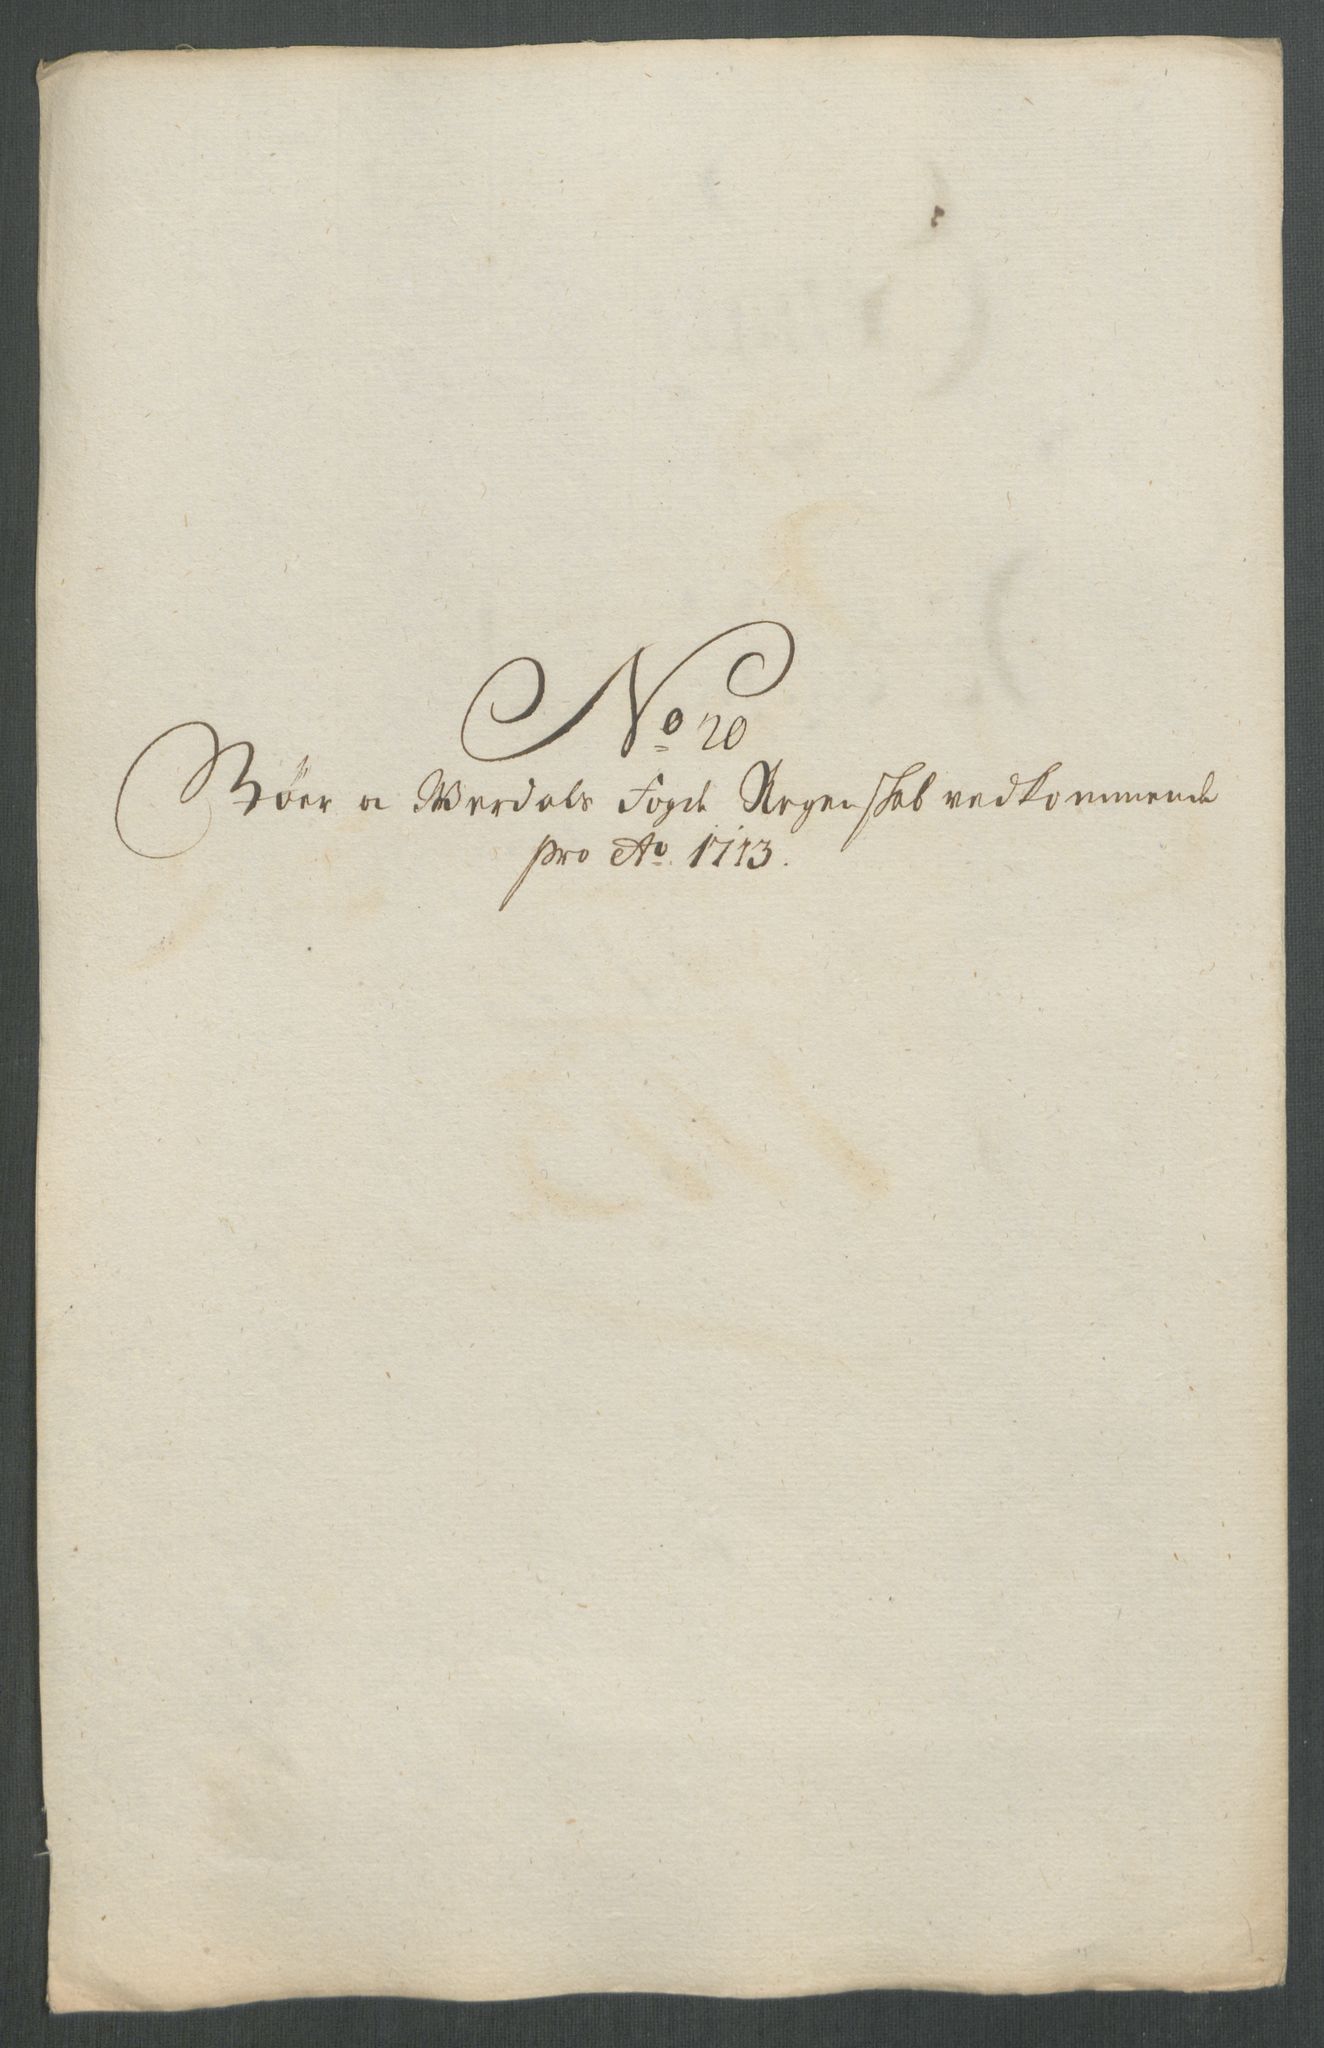 No 20
Stöer og Werdals Fogd: Regenskab vedkommende
pro Ao. 1713.